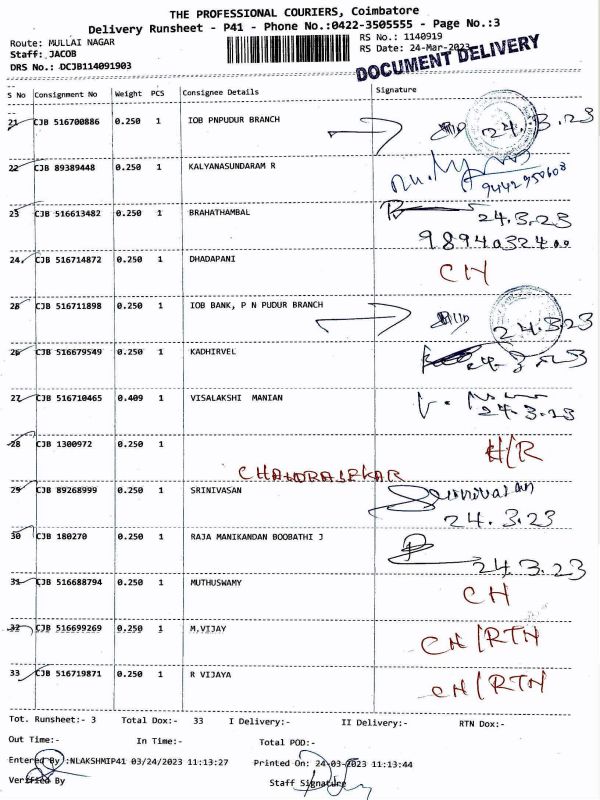 THE PROFESSIONAL COURIERS, Coimbatore
Delivery Runsheet - P41 - Phone No.:0422-3505555 - Page No.:3
Route: MULLAI NAGAR RS No.: 1140919
Staff: JACOB RS Date: 24-Mar-2023
DRS No.: DCJB114091903 DOCUMENT DELIVERY
S No Consignment No Weight PCS Consignee Details Signature
21 CJB 516700886 0.250 1 IOB PNPUDUR BRANCH 24.3.23
22 CJB 89389448 0.250 1 KALYANASUNDARAM R
23 CJB 516613482 0.250 1 BRAHATHAMBAL 24.3.23
24 CJB 516714872 0.250 1 DHADAPANI CH
25 CJB 516711898 0.250 1 IOB BANK, P N PUDUR BRANCH 24.3.23
26 CJB 516679549 0.250 1 KADHIRVEL 24.3.23
27 CJB 516710465 0.409 1 VISALAKSHI MANIAN 24.3.23
28 CJB 1300972 0.250 1 H/R
CHANDRASEKAR
29 CJB 89268999 0.250 1 SRINIVASAN Srinivasan
24.3.23
30 CJB 180270 0.250 1 RAJA MANIKANDAN BOOBATHI J
24.3.23
31 CJB 516688794 0.250 1 MUTHUSWAMY CH
32 CJB 516699269 0.250 1 M.VIJAY CH/RTN
33 CJB 516719871 0.250 1 R VIJAYA CH/RTN
Tot. Runsheet:- 3 Total Dox:- 33 I Delivery:- II Delivery:- RTN Dox:-
Out Time:- In Time:- Total POD:-
Entered By :NLAKSHMIP41 03/24/2023 11:13:27 Printed On: 24-03-2023 11:13:44
Verified By Staff Signature